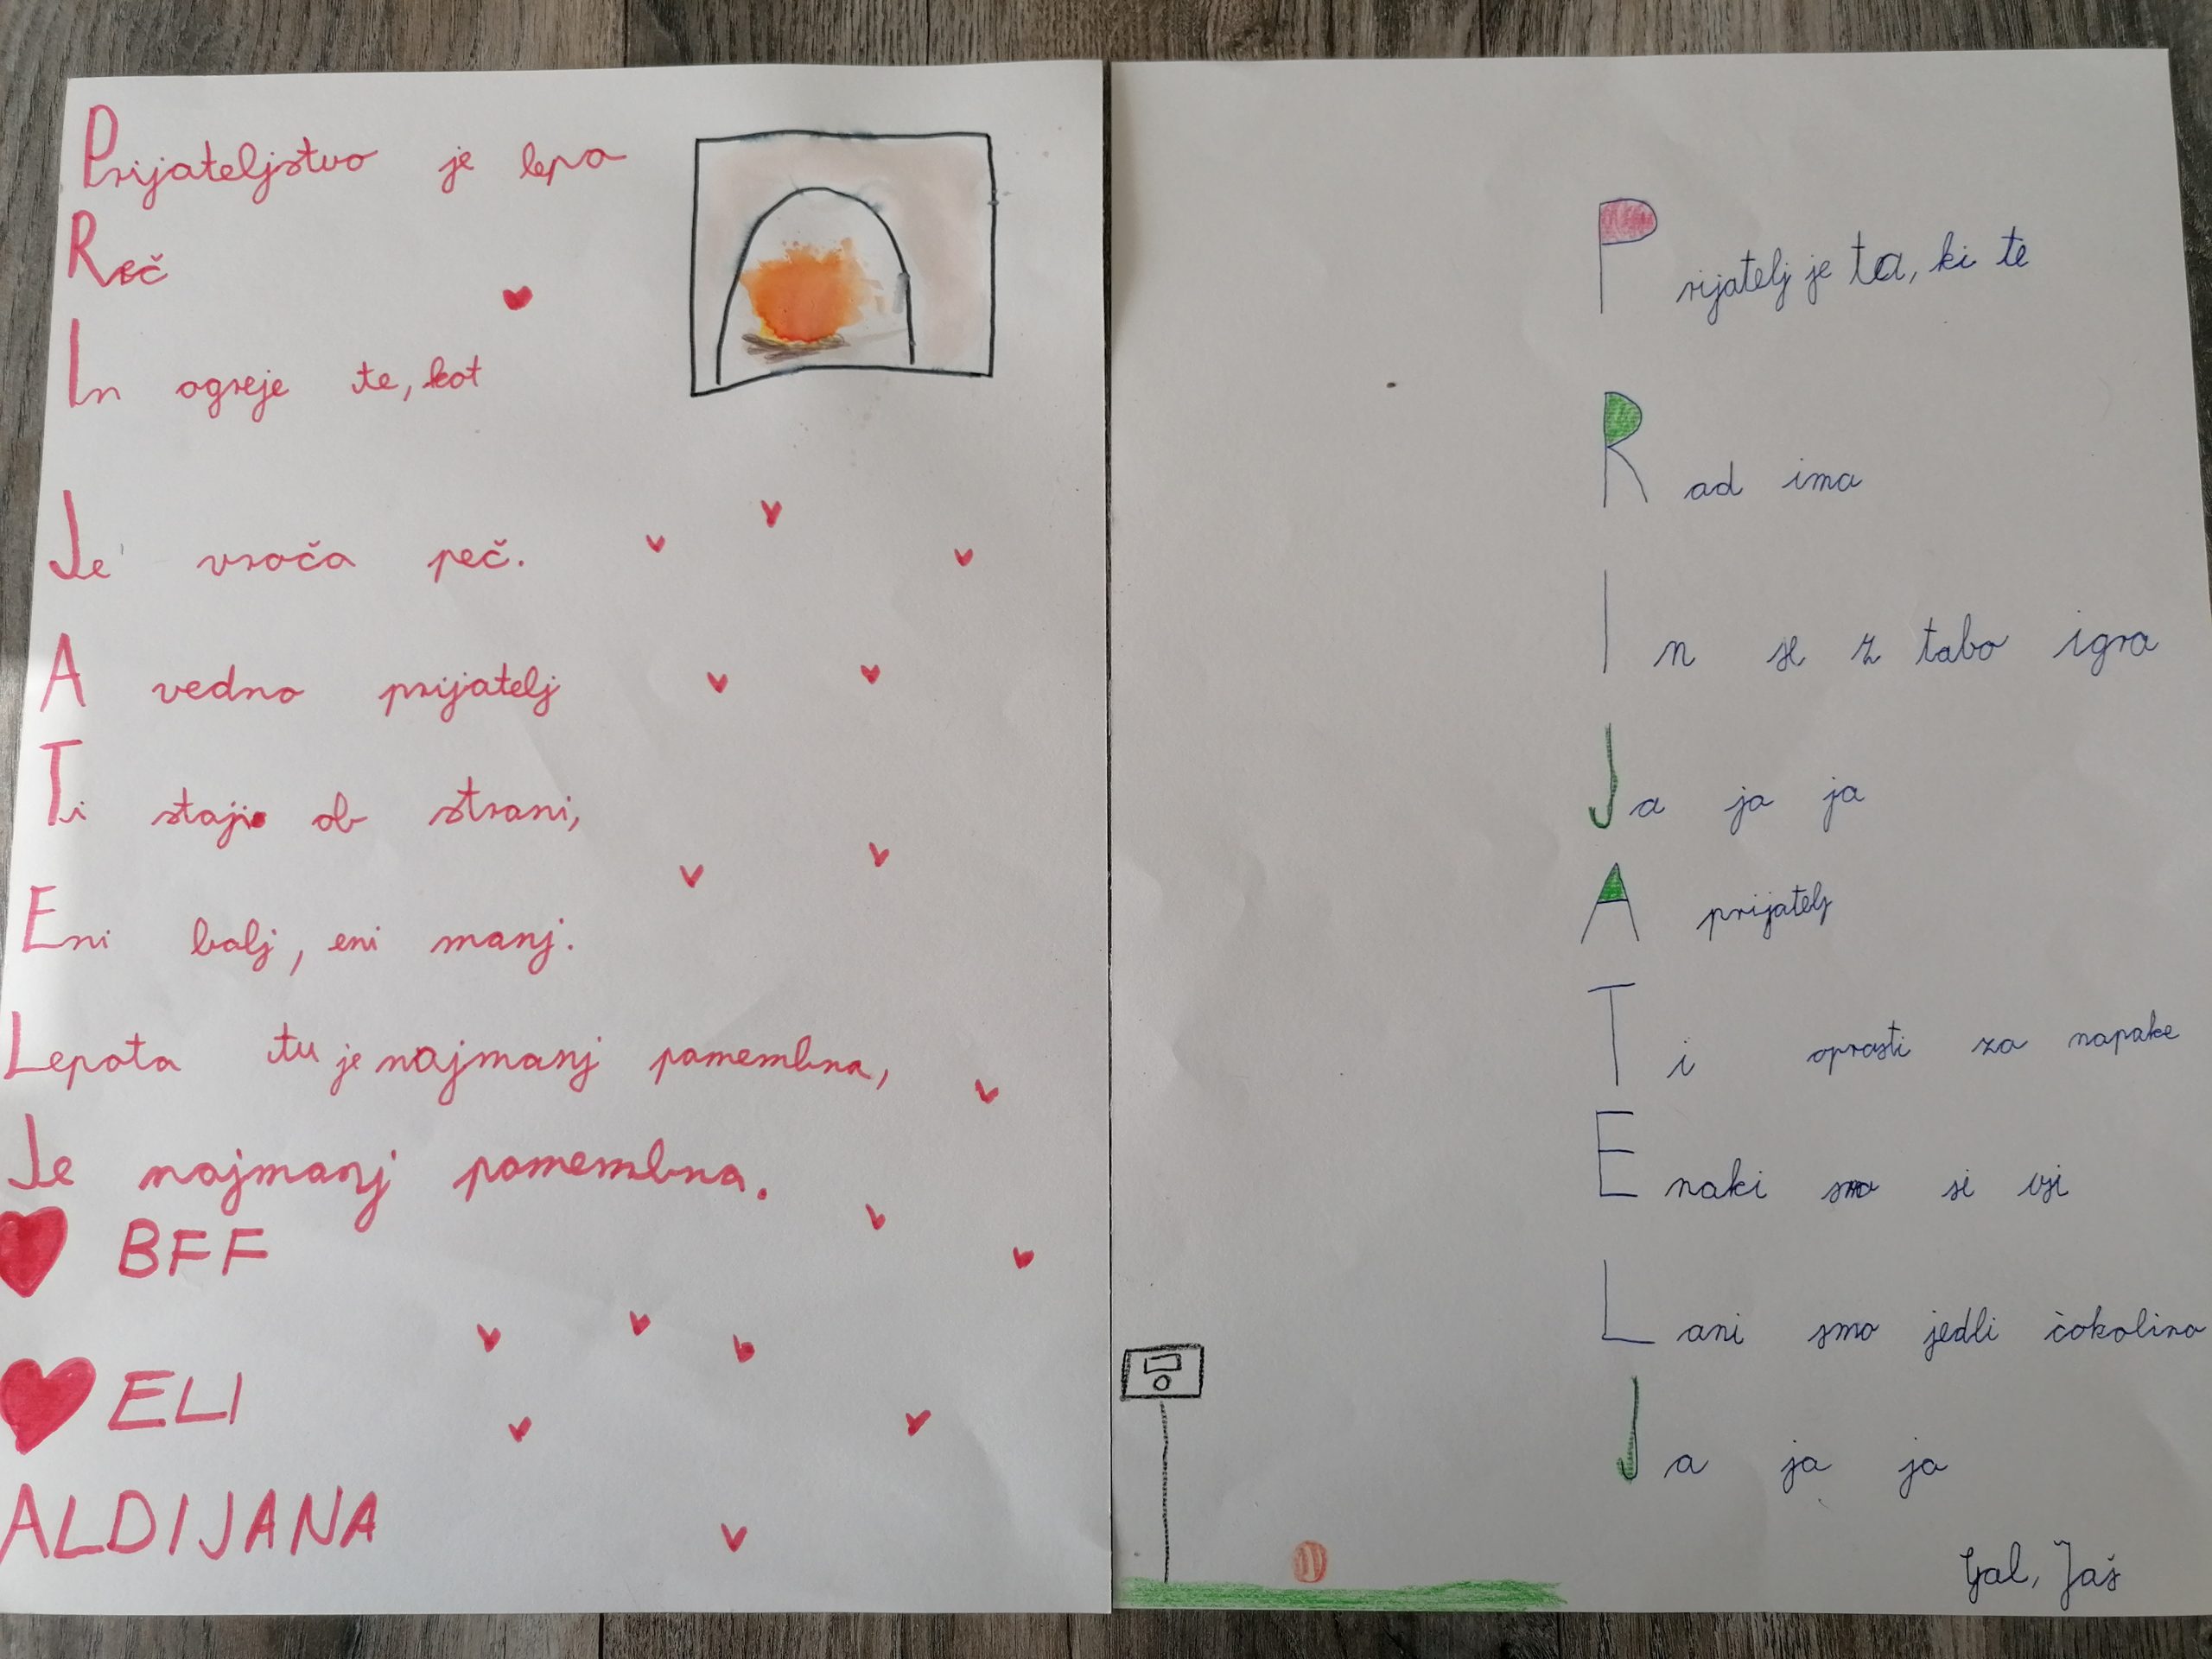 Prijateljstvo je lepa
Reč
In ogreje te, kot
Je vroča peč.
A vedno prijatelj
Ti staji ob strani,
Eni balj, eni manj.
Lepota tu je najmanj pomembna,
Je najmanj pomembna.
BFF
ELI
ALDIJANA
Prijatelj je ta, ki te
Rad ima
In se z tabo igra
Ja ja ja
A prijatelj
Ti oprosti za napake
Enaki smo si vsi
Lani smo jedli čokolino
Ja ja ja
Gal, Jaš